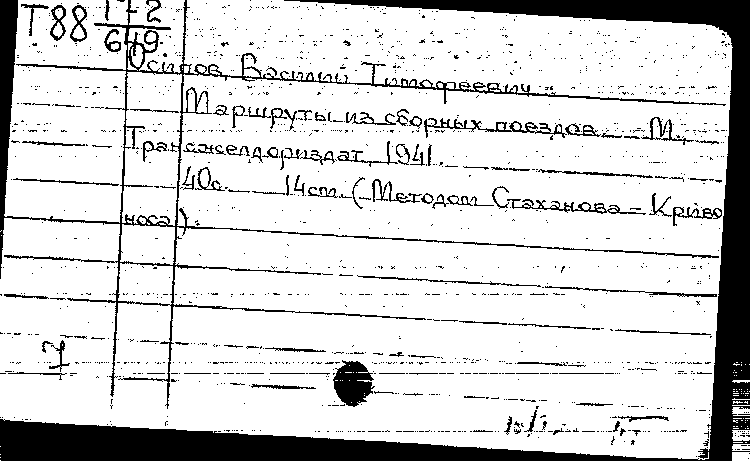 Т88 17-2
649
Осипов, Василий Тимофеевич.
Маршруты из сборных поездов. - М.,
Трансжелдориздат, 1941.
40с. 14см. (Методом Стаханова - Криво
носа).